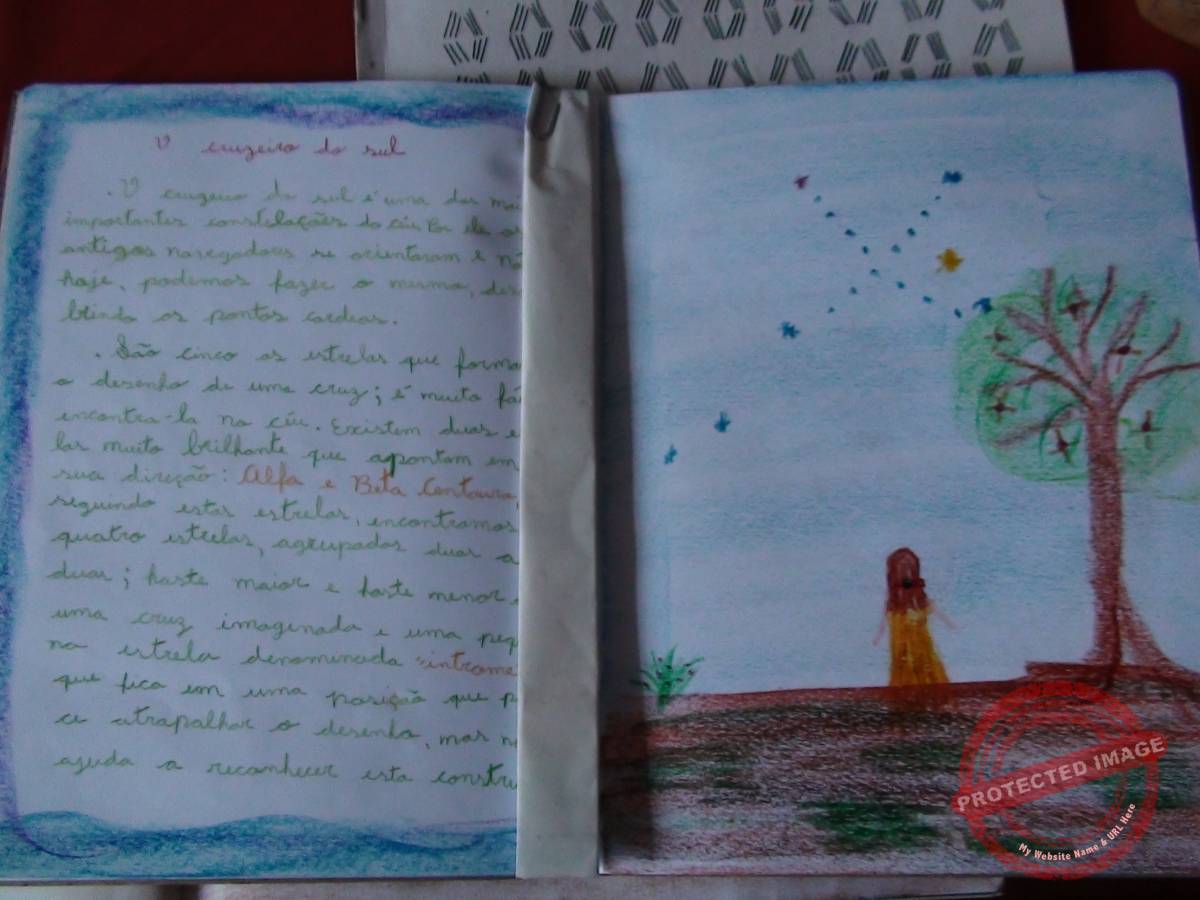 O cruzeiro do sul
. O cruzeiro do sul é uma das mai
importantes constelações do céu. Por ele os
antigos navegadores se orientaram e nó
hoje, podemos fazer o mesmo, des
brindo os pontos cardeas.
. São cinco as estrelas que forma
o desenho de uma cruz; é muito fá
encontra-la no céu. Existem duas e
las muito brilhante que apontam em
sua direção: Alfa e Beta Centauro,
seguindo estas estrelas, encontramos
quatro estrelas, agrupadas duas a
duas; haste maior e haste menor
uma cruz imaginada e uma peq
na estrela denominada "introme
que fica em uma posição que p
ce atrapalhar o desenho, mas n
ajuda a reconhecer esta constru
PROTECTED IMAGE
My Website Name & URL Here